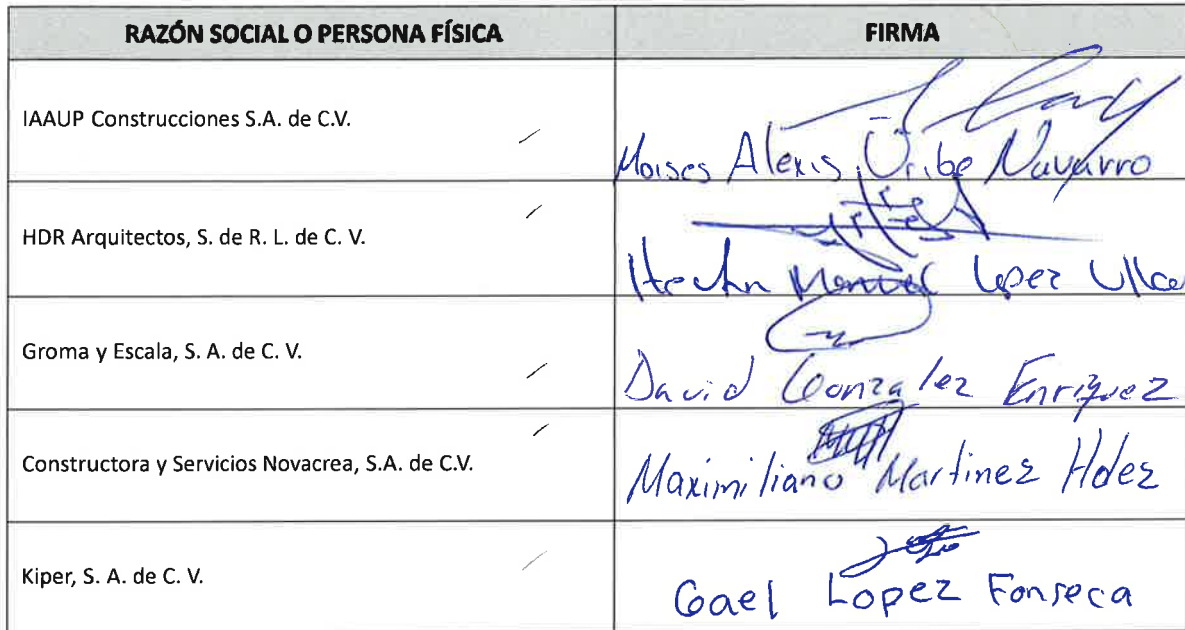 RAZÓN SOCIAL O PERSONA FÍSICA FIRMA
IAAUP Construcciones S.A. de C.V. Moises Alexis Uribe Navarro
HDR Arquitectos, S. de R. L. de C. V. Manuel Lopez
Groma y Escala, S. A. de C. V. David Gonzalez Enriquez
Constructora y Servicios Novacrea, S.A. de C.V. Maximiliano Martinez Hdez
Kiper, S. A. de C. V. Gael Lopez Fonseca